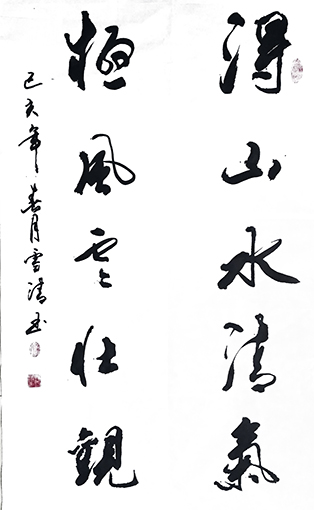 得山水清氣
極風雲壯觀
己亥年春月雪清書